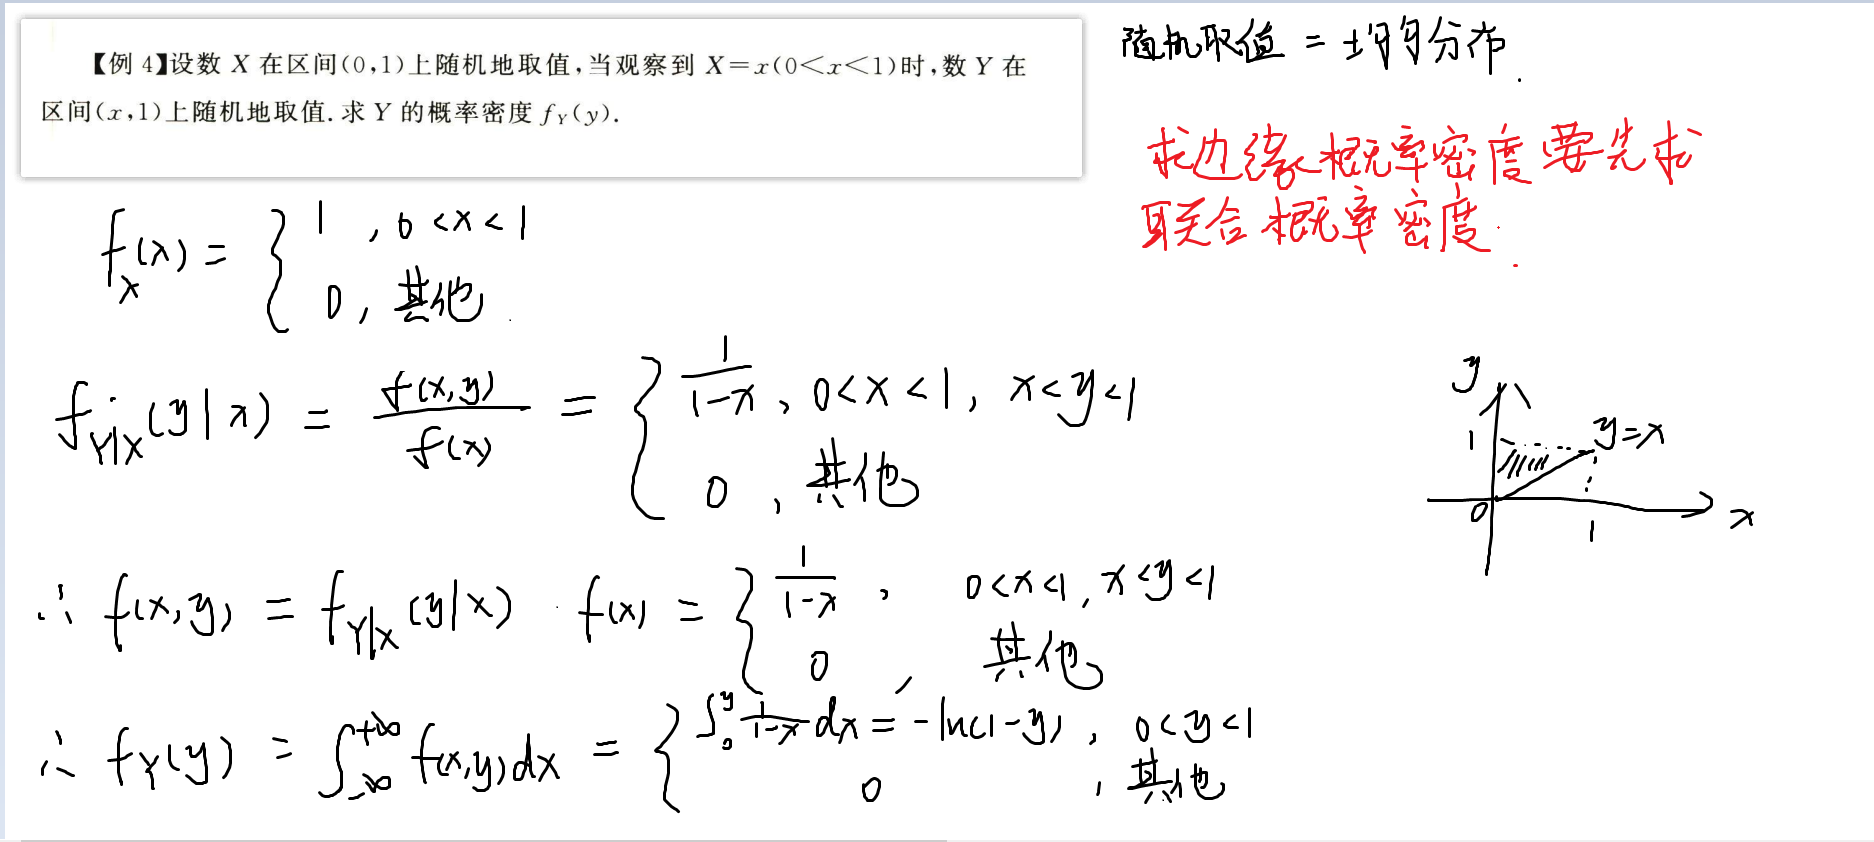 【例 4】设数 X 在区间(0,1)上随机地取值,当观察到 X=x(0<x<1)时,数 Y 在
区间(x,1)上随机地取值.求 Y 的概率密度 f_Y(y).
随机取值 = 均匀分布.
求边缘概率密度要先求
联合概率密度.
f_X(x) = { 1 , 0<x<1
0, 其他.
f_{Y|X}(y|x) = f(x,y)/f(x) = { 1/(1-x), 0<x<1, x<y<1
0 , 其他
y
1
y=x
0
1
x
∴ f(x,y) = f_{Y|X}(y|x) · f(x) = { 1/(1-x) , 0<x<1, x<y<1
0 , 其他
∴ f_Y(y) = ∫_{-∞}^{+∞} f(x,y)dx = { ∫_0^y 1/(1-x) dx = -ln(1-y), 0<y<1
0 , 其他